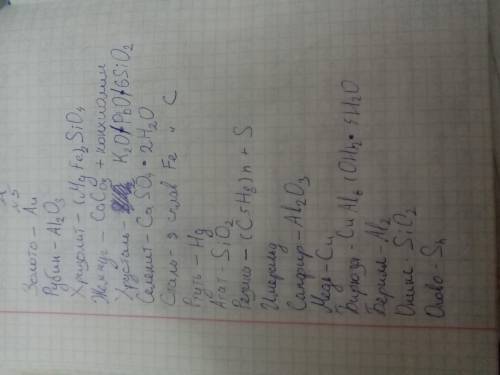 Золото - Au
Рубин - Al2O3
Хризолит - (Mg Fe)2SiO4
Жемчуг - CaCO3 + конхиолин
Хрусталь - K2O•PbO•6SiO2
Селенит - CaSO4 • 2H2O
сплав Fe и C
Ртуть - Hg
Агат - SiO2
Резина - (C5H8)n + S
Изумруд
Сапфир - Al2O3
Медь - Cu
Бирюза - CuAl6 (OH)2 • 5H2O
Берилл - Al2
Оникс - SiO2
Олово - Sn